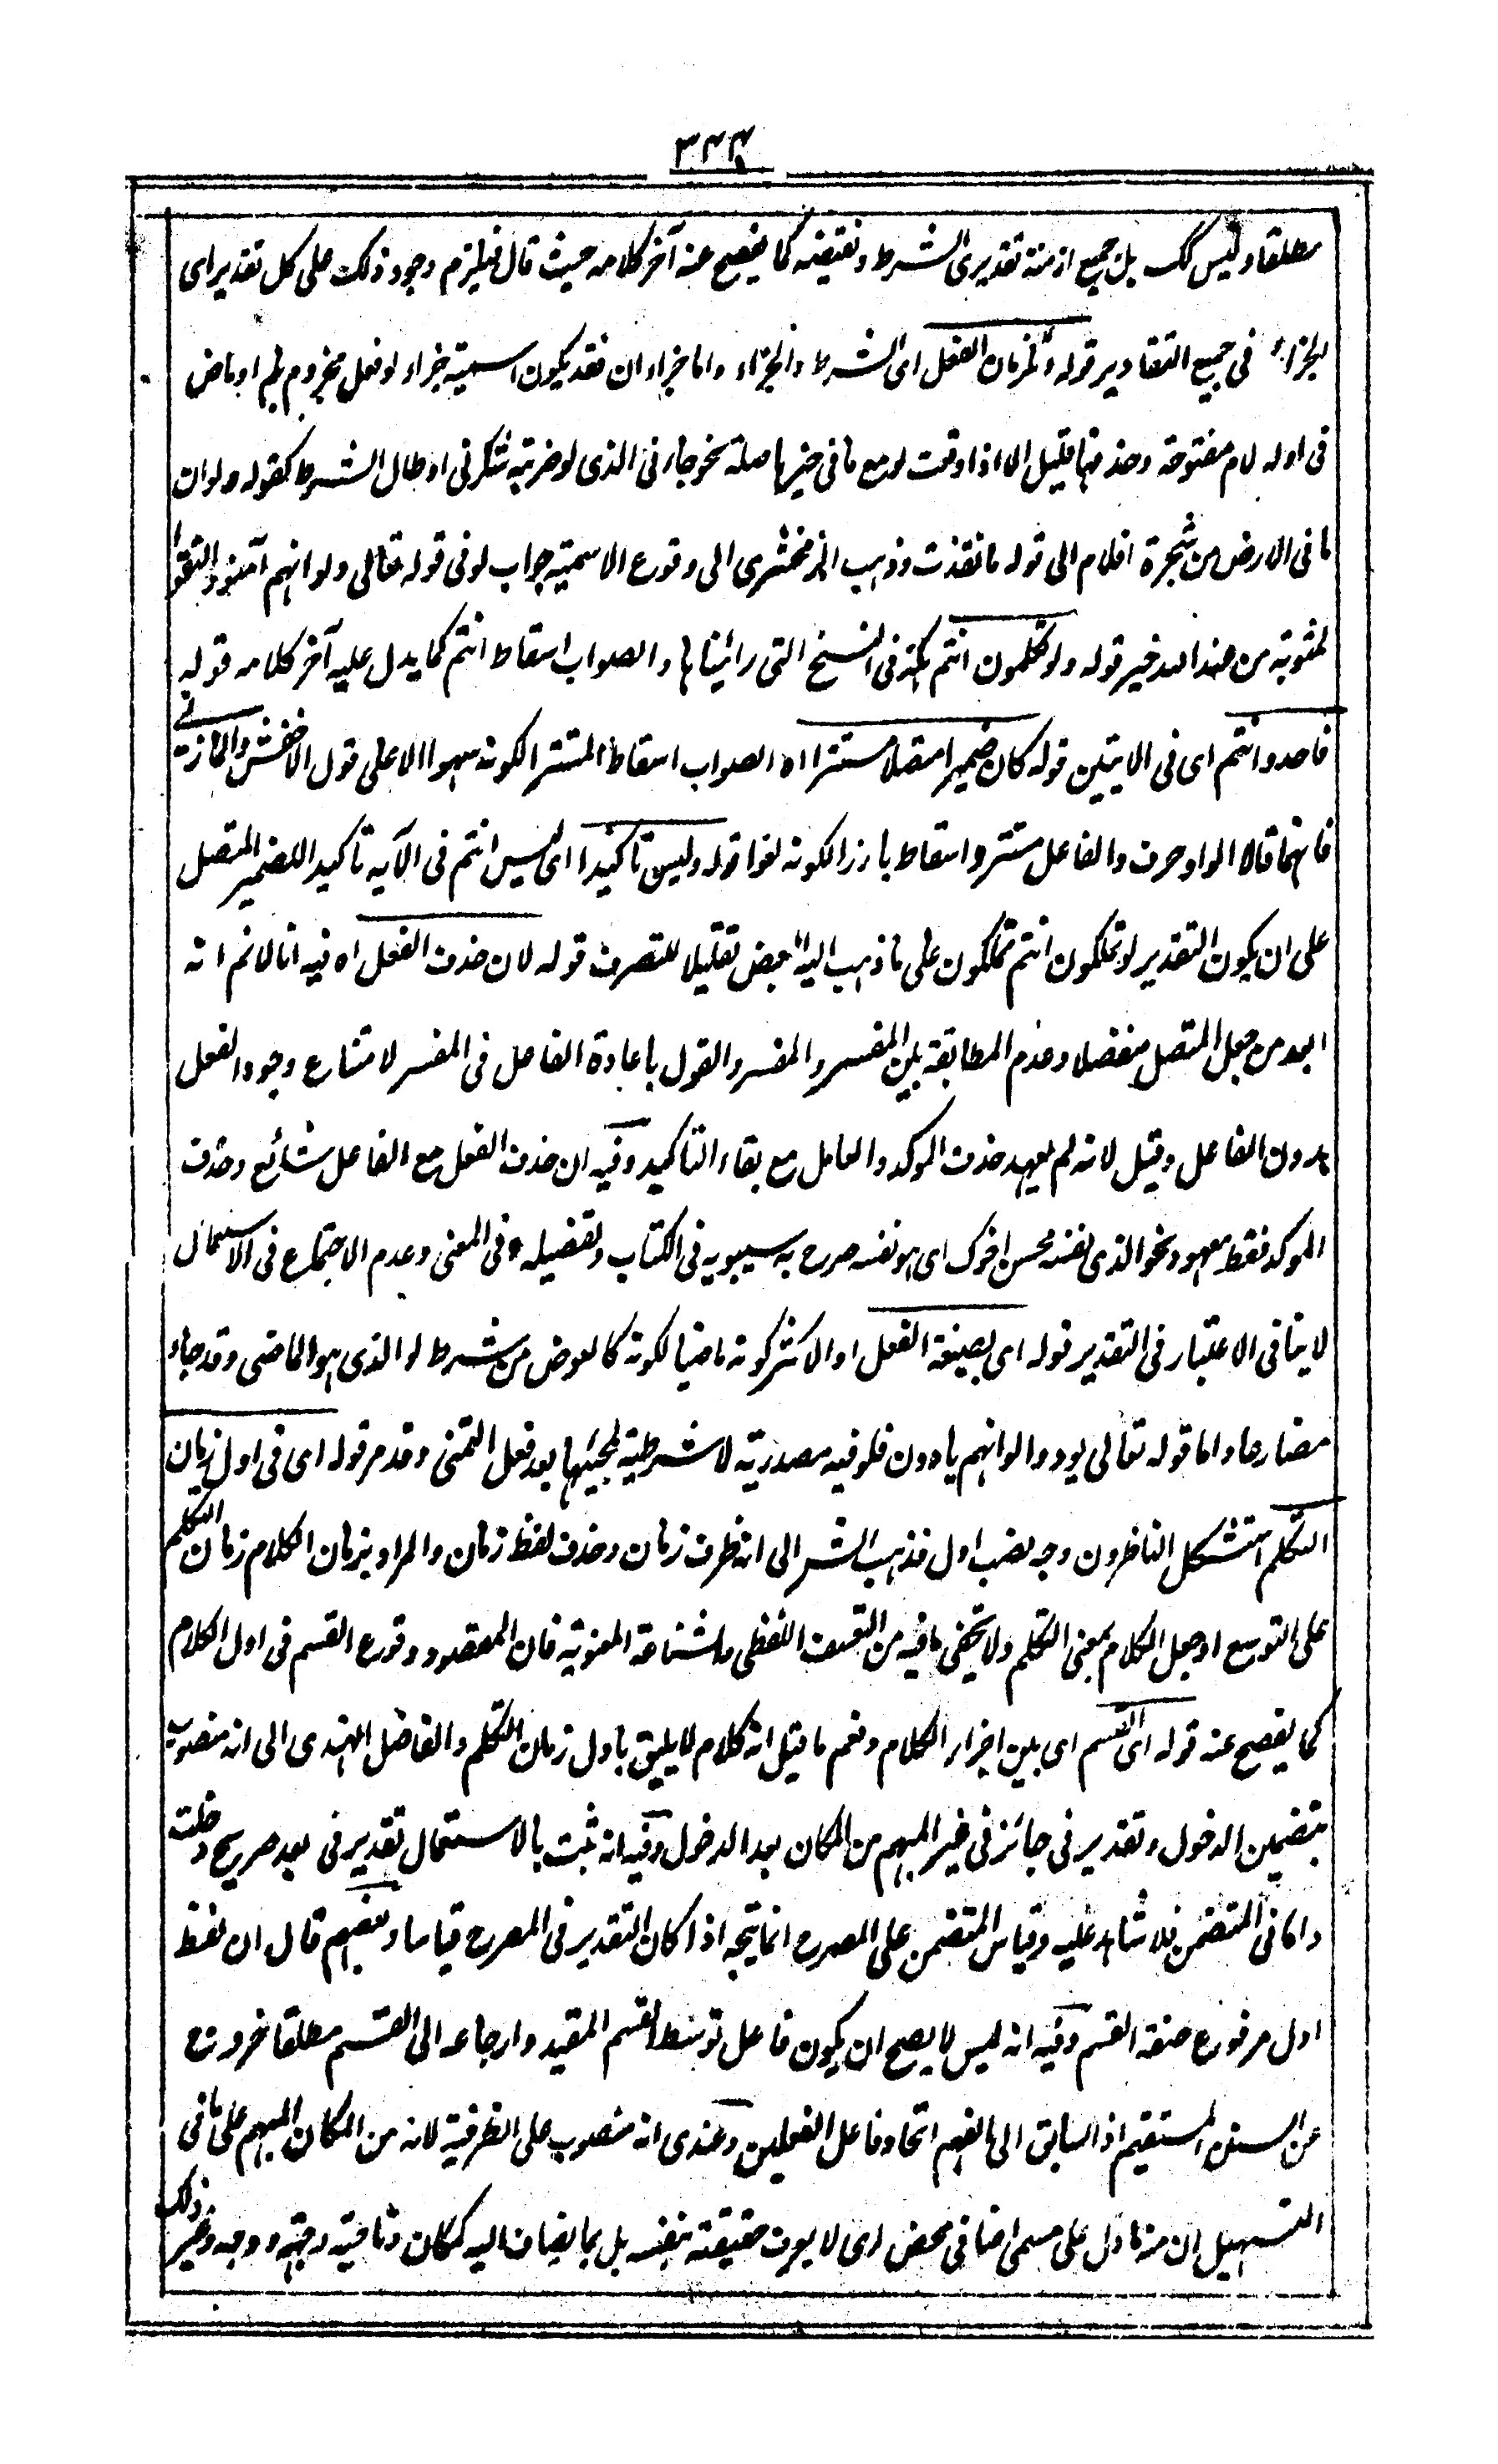 ٣٤٤
مطلقا وليس كك بل جميع ازمنة تقديرى الشرط ونقيضه كما يفصح عنه آخر كلامه حيث قال فيلزم وجود ذلك على كل تقدير اى
الجزاء فى جميع التقادير قوله وتلزمان الفعل اى الشرط والجزاء واما جزاء ان فقد يكون اسمية جزاء لو فعل مجزوم بلم او ماض
فى اوله لام مفتوحة وحذفها قليل الا اذا وقت لو مع ما فى حيزها صلة نحو جاءنى الذى لو ضربته شكرنى او طال الشرط كقوله ولو ان
ما فى الارض من شجرة اقلام الى قوله ما نفدت وذهب الزمخشرى الى وقوع الاسمية جواب لو فى قوله تعالى ولو انهم آمنوا واتقوا
لمثوبة من عند الله خير قوله ولو تملكون انتم هكذا فى النسخ التى رائيناها والصواب اسقاط انتم كما يدل عليه آخر كلامه قوله
فاحدو انتم اى فى الايتين قوله كان ضميرا متصلا مستترا اه الصواب اسقاط المستتر لكونه سهوا الا على قول الاخفش والمازنى
فانهما قالا الواو حرف والفاعل مستتر واسقاط بارز لكونه لغوا قوله وليس تاكيدا اى ليس انتم فى الآيه تاكيدا للضمير المتصل
على ان يكون التقدير لو تملكون انتم تملكون على ما ذهب اليه البعض تقليلا للتصرف قوله لان حذف الفعل اه فيه انا لانم انه
ابعد من جعل المتصل منفصلا وعدم المطابقة بين المفسر والمفسر والقول باعادة الفاعل فى المفسر لامتناع وجود الفعل
بدون الفاعل وقيل لانه لم يعهد حذف الموكد والعامل مع بقاء التاكيد وفيه ان حذف الفعل مع الفاعل شائع وحذف
الموكد فقط معهود ونحو الذى نفسه محسن اخوك اى هو نفسه صرح به سيبويه فى الكتاب وتفصيله فى المغنى وعدم الاجتماع فى الاستعمال
لا ينافى الاعتبار فى التقدير قوله اى بصيغة الفعل اه الاكثر كونه ماضيا لكونه كالعوض من شرط لو الذى هو الماضى وقد جاء
مضارعا واما قوله تعالى يودوا لو انهم بادون فلو فيه مصدرية لا شرطية لمجيئها بعد فعل التمنى وقد مر قوله اى فى اول زمان
التكلم استشكل الناظرون وجه نصب اول فذهب الشر الى انه ظرف زمان وحذف لفظ زمان والمراد بزمان الكلام زمان التكلم
على التوسع او جعل الكلام بمعنى التكلم ولا يخفى ما فيه من التعسف اللفظى والشناعة المعنوية فان المقصود وقوع القسم فى اول الكلام
كما يفصح عنه قوله اى القسم اى بين اجزاء الكلام ونعم ما قيل انه كلام لا يليق باول زمان التكلم والفاضل الهندى الى انه منصوب
بتضمين الدخول وتقدير فى جائز فى غير المبهم من المكان بعد الدخول وفيه انه ثبت بالاستعمال تقدير فى بعد صريح دخلت
واما فى المتضمن فلا شاهد عليه وقياس المتضمن على المصرح انما يتجه اذا كان التقدير فى المصرح قياسا وبعضهم قال ان لفظ
اول مرفوع صفة القسم وفيه انه ليس لا يصح ان يكون فاعل توسط القسم المقيد وارجاعه الى القسم مطلقا خروج
عن السنن المستقيم اذ السابق الى الفهم اتحاد فاعل الفعلين وعندى انه منصوب على الظرفية لانه من المكان المبهم على ما فى
التسهيل ان منه ما دل على مسمى اضافى محض اى لا يعرف حقيقته بنفسه بل بما يضاف اليه كمكان وناحية وجهة ووجه وغير ذلك